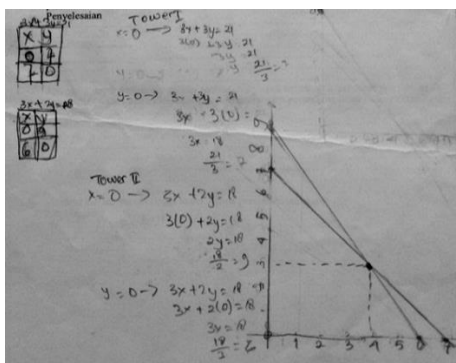 Penyelesaian
3x+3y=21
x y
0 7
7 0
3x+2y=18
x y
0 9
6 0
Tower I
x=0 → 3x+3y=21
3(0)+3y=21
3y=21
21/3=7
y=0 → 3x+3y=21
3x+3(0)=
3x=18
21/3=7
Tower II
x=0 → 3x+2y=18
3(0)+2y=18
2y=18
18/2=9
y=0 → 3x+2y=18
3x+2(0)=18
3x=18
18/3=6
9
8
7
6
5
4
3
2
1 2 3 4 5 6 7